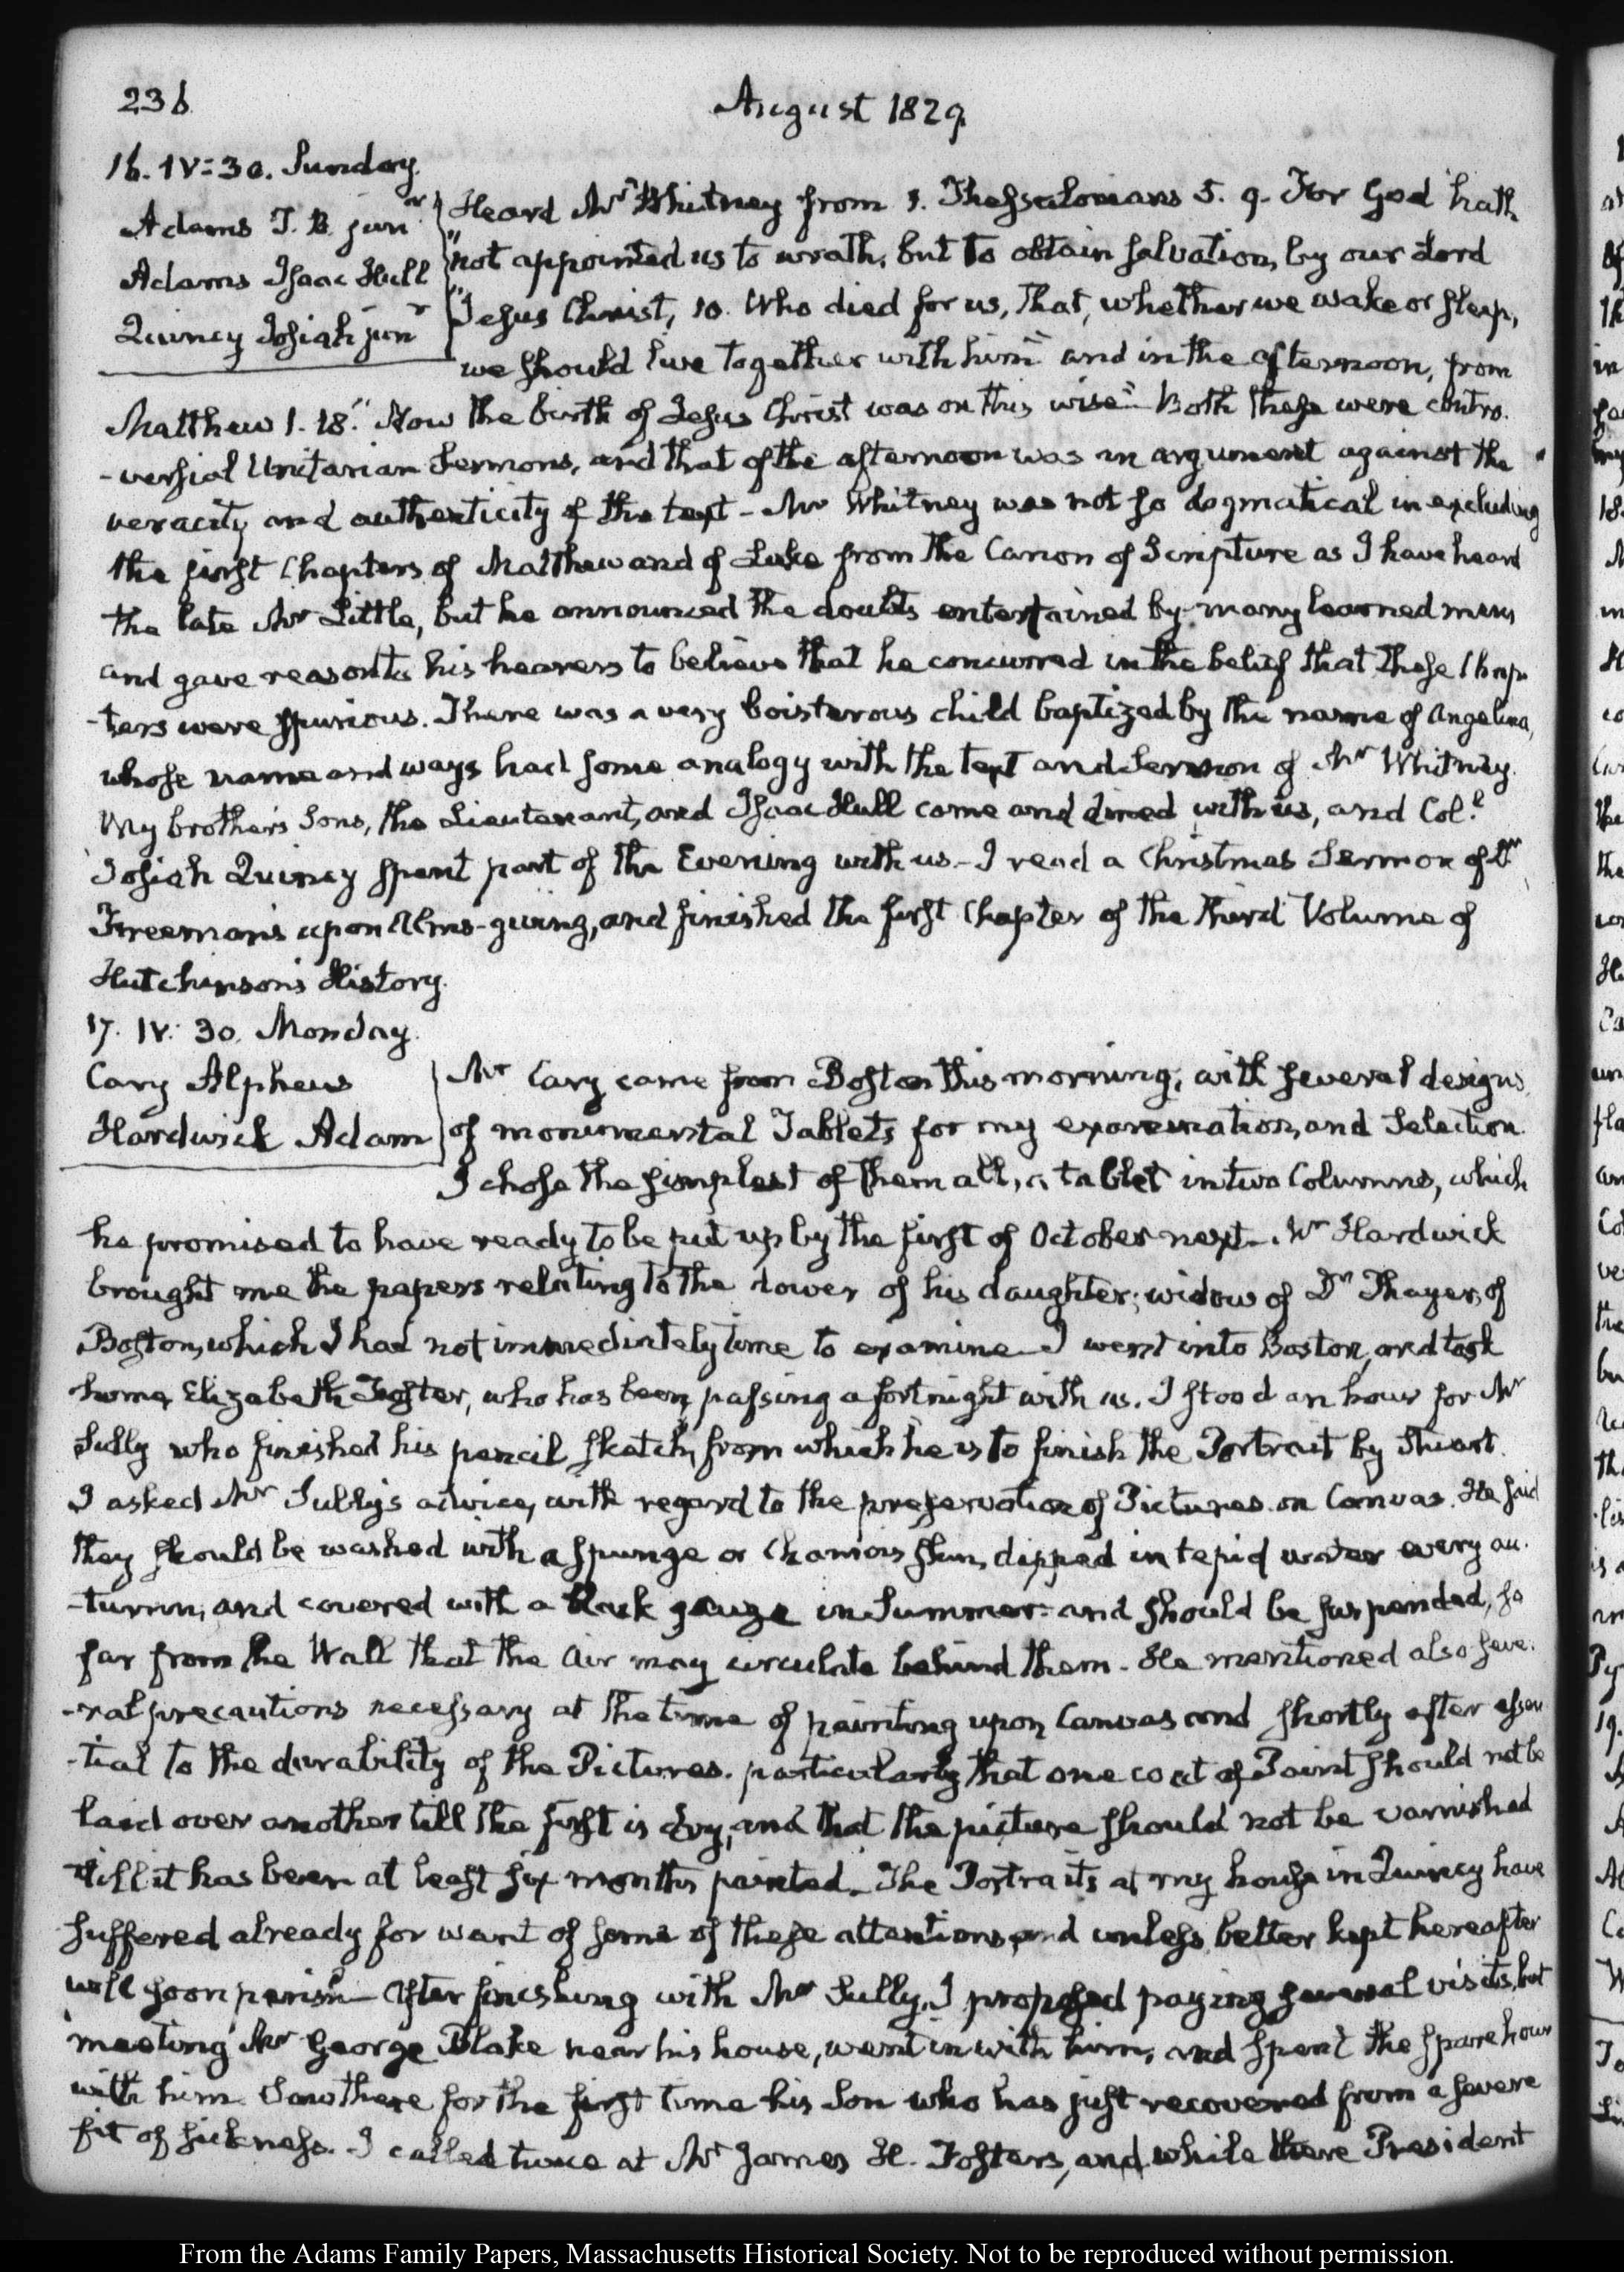 236
August 1829
16. IV:30. Sunday.
Adams T. B. junr
Adams Isaac Hull
Quincy Josiah junr
Heard Mr Whitney from 1. Thessalonians 5. 9. For God hath
"not appointed us to wrath, but to obtain salvation, by our Lord
"Jesus Christ, 10. Who died for us, that, whether we wake or sleep,
we should live together with him" and in the afternoon, from
Matthew 1. 18. "Now the birth of Jesus Christ was on this wise" Both these were contro-
-versial Unitarian Sermons, and that of the afternoon was an argument against the
veracity and authenticity of the text - Mr Whitney was not so dogmatical in excluding
the first Chapters of Matthew and of Luke from the Canon of Scripture as I have heard
the late Mr Little, but he announced the doubts entertained by many learned men,
and gave reason to his hearers to believe that he concurred in the belief that these Chap-
-ters were spurious. There was a very boisterous child baptized by the name of Angelina,
whose name and ways had some analogy with the text and Sermon of Mr Whitney.
My brother's Sons, the Lieutenant, and Isaac Hull came and dined with us, and Coll
Josiah Quincy spent part of the Evening with us - I read a Christmas Sermon of Dr
Freeman's upon Alms-giving, and finished the first Chapter of the third Volume of
Hutchinson's History.
17. IV:30. Monday.
Cary Alpheus
Hardwick Adam
Mr Cary came from Boston this morning, with several designs
of monumental Tablets for my examination, and Selection.
I chose the simplest of them all, a tablet in two Columns, which
he promised to have ready to be put up by the first of October next. Mr Hardwick
brought me the papers relating to the dower of his daughter, widow of Dr Thayer, of
Boston, which I had not immediately time to examine - I went into Boston, and took
home, Elizabeth Foster, who has been passing a fortnight with us. I stood an hour for Mr
Sully who finished his pencil sketch, from which he is to finish the Portrait by Stuart.
I asked Mr Sully's advice, with regard to the preservation of Pictures on Canvas. He said
they should be washed with a spunge or Chamois skin, dipped in tepid water every au-
-tumn, and covered with a black gauze in Summer: and should be suspended, so
far from the Wall that the Air may circulate behind them - He mentioned also seve-
-ral precautions necessary at the time of painting upon Canvas and shortly after essen-
-tial to the durability of the Pictures. particularly that one coat of Paint should not be
laid over another till the first is dry, and that the picture should not be varnished
till it has been at least six months painted. The Portraits at my house in Quincy have
suffered already for want of some of these attentions, and unless better kept hereafter
will soon perish - After finishing with Mr Sully, I proposed paying several visits, but
meeting Mr George Blake near his house, went in with him, and spent the spare hour
with him. Saw there for the first time his Son who has just recovered from a severe
fit of sickness. I called twice at Mr James H. Foster's, and while there President
From the Adams Family Papers, Massachusetts Historical Society. Not to be reproduced without permission.